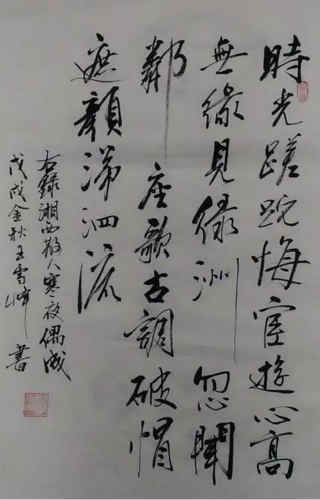 時光蹉跎悔宦遊心高
無緣見綠洲忽聞
鄰座歌古調破帽
遮顏涕泗流
右錄湘西散人寒夜偶成
戊戌金秋王雪峰書